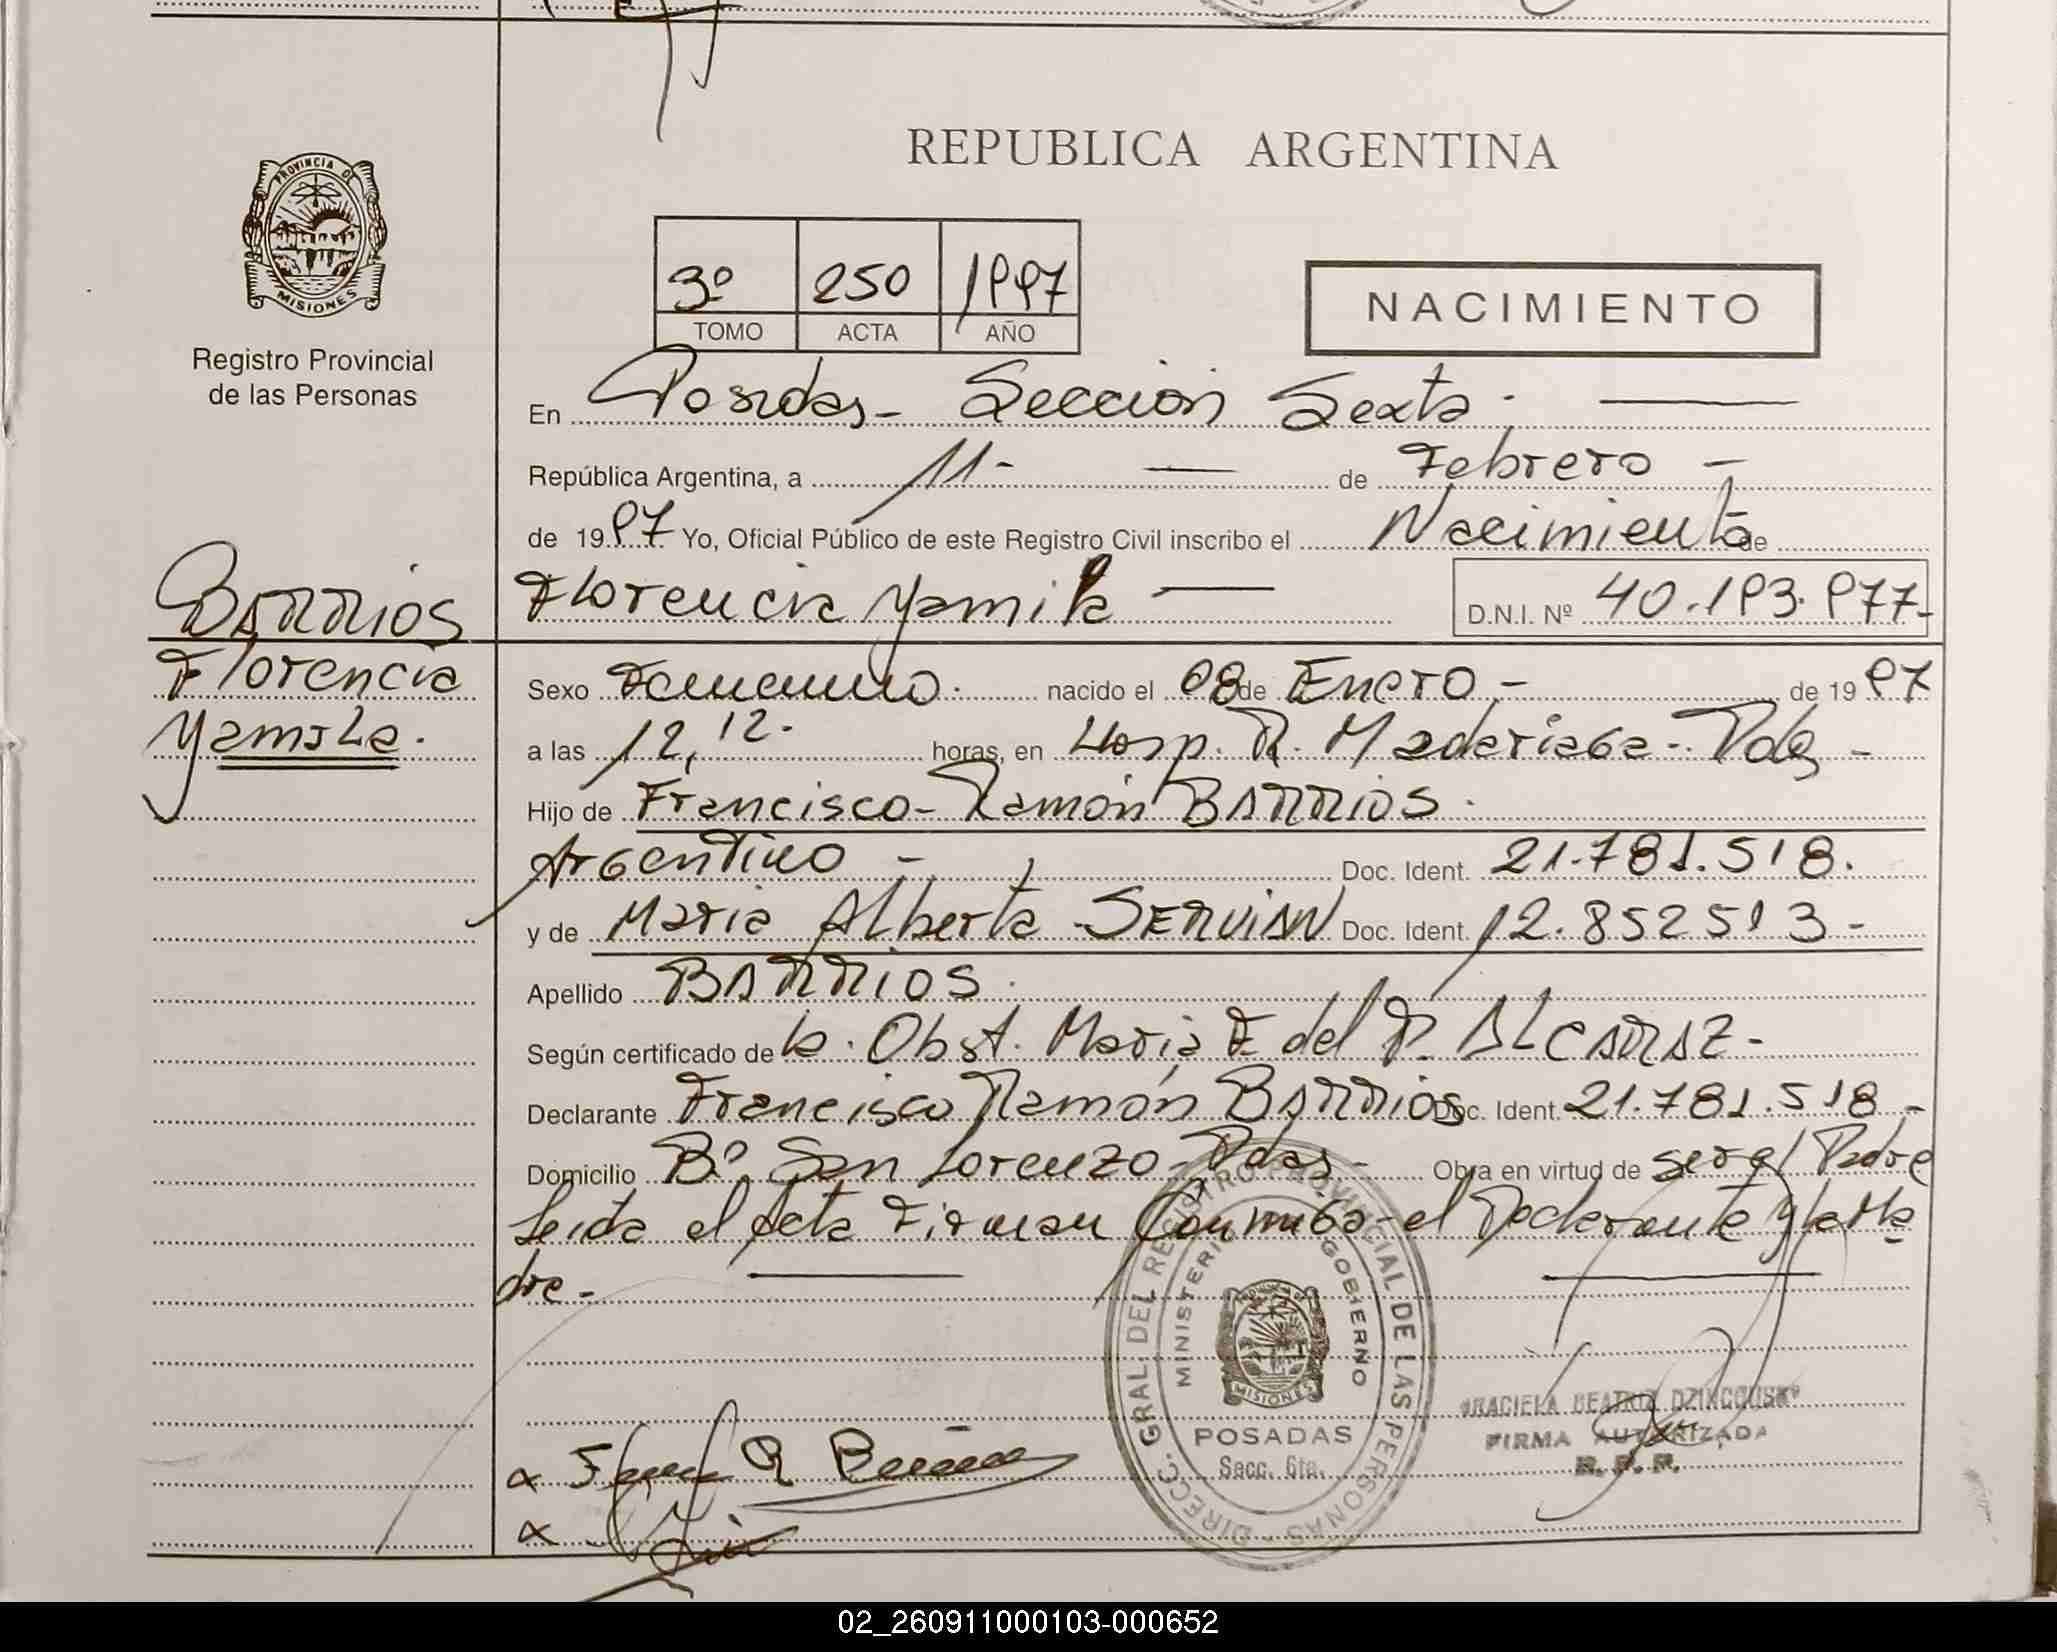 REPUBLICA ARGENTINA
PROVINCIA DE
MISIONES
Registro Provincial
de las Personas
3º 250 1997
TOMO ACTA AÑO
NACIMIENTO
En Posadas - Sección Sexta. —
República Argentina, a 11 - — de Febrero -
de 1997 Yo, Oficial Público de este Registro Civil inscribo el Nacimiento de
Florencia Yamila — D.N.I. Nº 40.193.977-
BARRIOS
Florencia
Yamila.
Sexo Femenino. nacido el 08 de Enero - de 1997
a las 12,12. horas, en Hosp. R. Madariaga - Pdas -
Hijo de Francisco - Ramón BARRIOS.
Argentino - Doc. Ident. 21.781.518.
y de Maria Alberta SERVIAN Doc. Ident. 12.852513 -
Apellido BARRIOS.
Según certificado de la Obst. María F. del P. ALCARAZ -
Declarante Francisco Ramón BARRIOS Doc. Ident. 21.781.518 -
Domicilio Bº San Lorenzo - Pdas - Obra en virtud de ser el Padre
Leida el Acta Firman Conmigo el Declarante y la Ma
dre -
DIRECC. GRAL. DEL REGISTRO PROVINCIAL DE LAS PERSONAS
MINISTERIO GOBIERNO
MISIONES
POSADAS
Secc. 6ta.
GRACIELA BEATRIZ
FIRMA AUTORIZADA
R. P. P.
02_260911000103-000652